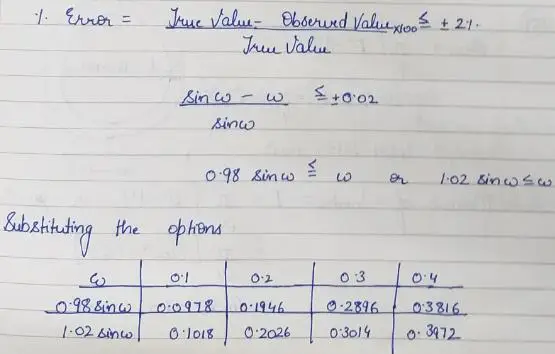 % Error = True Value - Observed Value ×100 ≤ ± 2%.
True Value
sinω - ω ≤ ±0.02
sinω
0.98 sinω ≤ ω or 1.02 sinω ≤ ω
Substituting the options
ω 0.1 0.2 0.3 0.4
0.98sinω 0.0978 0.1946 0.2896 0.3816
1.02 sinω 0.1018 0.2026 0.3014 0.3972